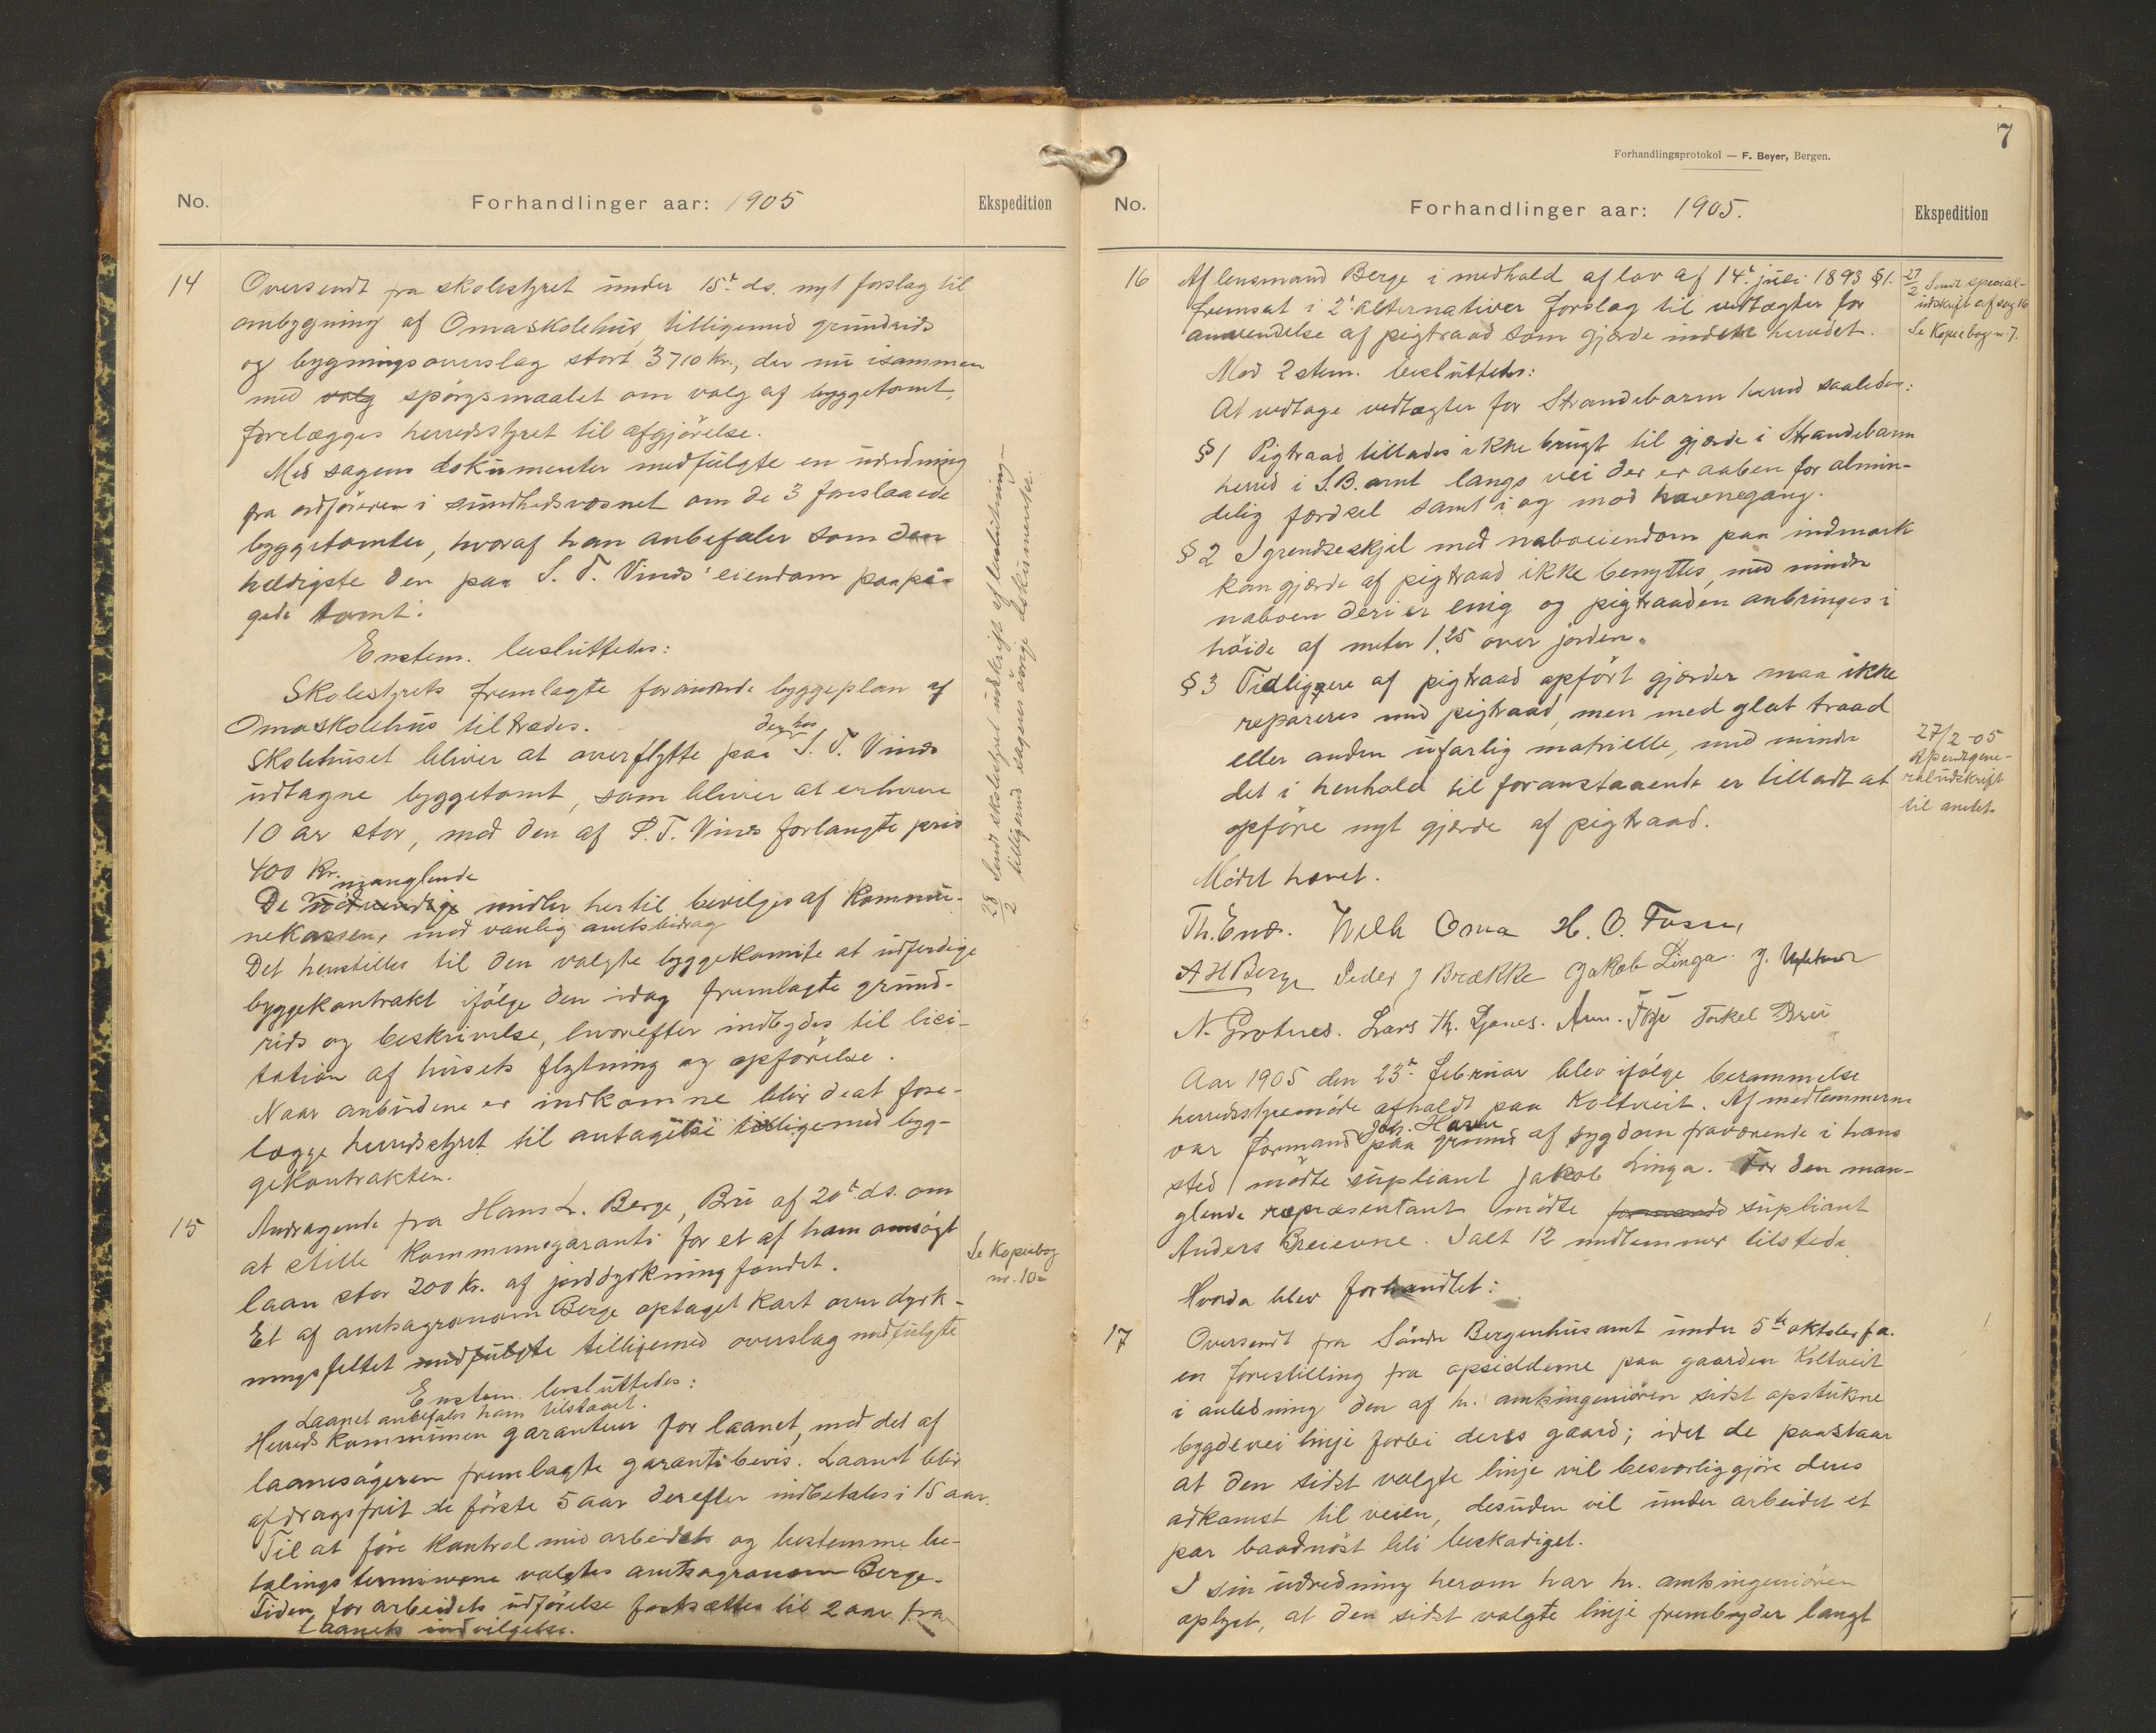 No.
Forhandlinger aar: 1905
Ekspedition
14
Oversendt fra skolestyret under 15de ds. nyt forslag til
ombygning af Omaskolehus, tilligemed grundrids
og bygningsoverslag stort 3710 kr., der nu isammen
med valg spørgsmaalet om valg af byggetomt,
forelægges herredsstyret til afgjörelse.
Med sagens dokumenter medfulgte en udredning
fra ordföreren i sundhedsvæsnet om de 3 foreslaaede
byggetomter, hvoraf han anbefaler som den
heldigste den paa S. T. Vines eiendom paape-
gede tomt.
Enstem. besluttedes:
Skolestyrets fremlagte forandrede byggeplan af
Omaskolehus tiltrædes.
den hos
Skolehuset bliver at overflytte paa S. T. Vines
udtagne byggetomt, som bliver at erhverve
10 ar stor, med den af S. T. Vines forlangte pris
400 Kr.
manglende
De nödvendige midler hertil bevilges af Kommu-
nekassen, med vanlig amtsbidrag
Det henstilles til den valgte byggekomite at udferdige
byggekontrakt ifölge den idag fremlagte grund-
rids og beskrivelse, hvorefter indbydes til lici-
tation af husets flytning og opförelse.
Naar anbudene er indkomne blir de at fore-
lægge herredsstyret til antagelse tilligemed byg-
gekontrakten.
28/2 Sendt skolestyret udskrift af beslutning-
tilligemed sagens övrige dokumenter.
15
Andragende fra Hans L. Berge, Bru af 20de ds. om
at stille Kommunegaranti for et af ham ansögt
laan stor 200 Kr. af jorddyrkningsfondet.
Se Kopiebog
nr. 10
Et af amtsagronom Berge optaget Kart over dyrk-
ningsfeltet medfulgte tilligemed overslag medfulgte
Enstem. besluttedes:
Laanet anbefales ham tilstaaet.
Herredskommunen garanterer for laanet, med det af
laanesögeren fremlagte garantibevis. Laanet blir
afdragsfrit de förste 5 aar derefter indbetales i 15 aar.
Til at före kontrol med arbeidet og bestemme be-
talingsterminerne valgtes amtsagronom Berge.
Tiden for arbeidets udförelse fastsættes til 2 aar fra
Laanets indvilgelse.
7
Forhandlingsprotokol — F. Beyer, Bergen.
No.
Forhandlinger aar: 1905.
Ekspedition
16
Af lensmand Berge i medhold af lov af 14de juli 1893 §1.
fremsat i 2de alternativer forslag til vedtægter for
anvendelse af pigtraad som gjærde inden herredet.
27/2 Sendt special-
udskrift af sag 16
Se Kopiebog nr. 7.
Mod 2 stem. besluttedes:
At vedtage vedtægter for Strandebarm herred saaledes:
§ 1 Pigtraad tillades ikke brugt til gjærde i Strandebarm
herred i S.B. amt langs vei der er aaben for almin-
delig færdsel samt i og mod havnegang.
§ 2 I grendseskjel med naboeiendom paa indmark
kan gjærde af pigtraad ikke benyttes, med mindre
naboen deri er enig og pigtraaden anbringes i
höide af meter 1,25 over jorden.
§ 3 Tidligere af pigtraad opfört gjærder maa ikke
repareres med pigtraad, men med glat traad
eller anden ufarlig matrielle, med mindre
det i henhold til foranstaaende er tilladt at
opföre nyt gjærde af pigtraad.
27/2-05
afsendt gene-
raludskrift
til amtet.
Mödet hævet.
Th. Enes. Wilh Oma H. O. Fosse,
A H Berge Peder J Brække Jakob Linga. J.
N. Grotnes. Lars Th. Djønes. Torkel Bru
Aar 1905 den 23de februar blev ifölge berammelse
herredsstyremöde afholdt paa Koltveit. Af medlemmerne
Joh. Havn
var formand paa grund af sygdom fraværende i hans
sted mödte supliant Jakob Linga. For den man-
glende repræsentant mödte formand supliant
Anders Breievne. Ialt 12 medlemmer tilstede.
Hvorda blev forhandlet:
17
Oversendt fra Söndre Bergenhus amt under 5te oktober f.a.
en forestilling fra opsidderne paa gaarden Koltveit
i anledning den af hr. amtsingeniören sidst opstukne
bygdevei linje forbi deres gaard; idet de paastaar
at den sidst valgte linje vil besværliggjöre deres
adkomst til veien, desuden vil under arbeidet et
par baadnöst bli beskadiget.
I sin udredning herom har hr. amtsingeniören
oplyst, at den sidst valgte linje frembyder langt